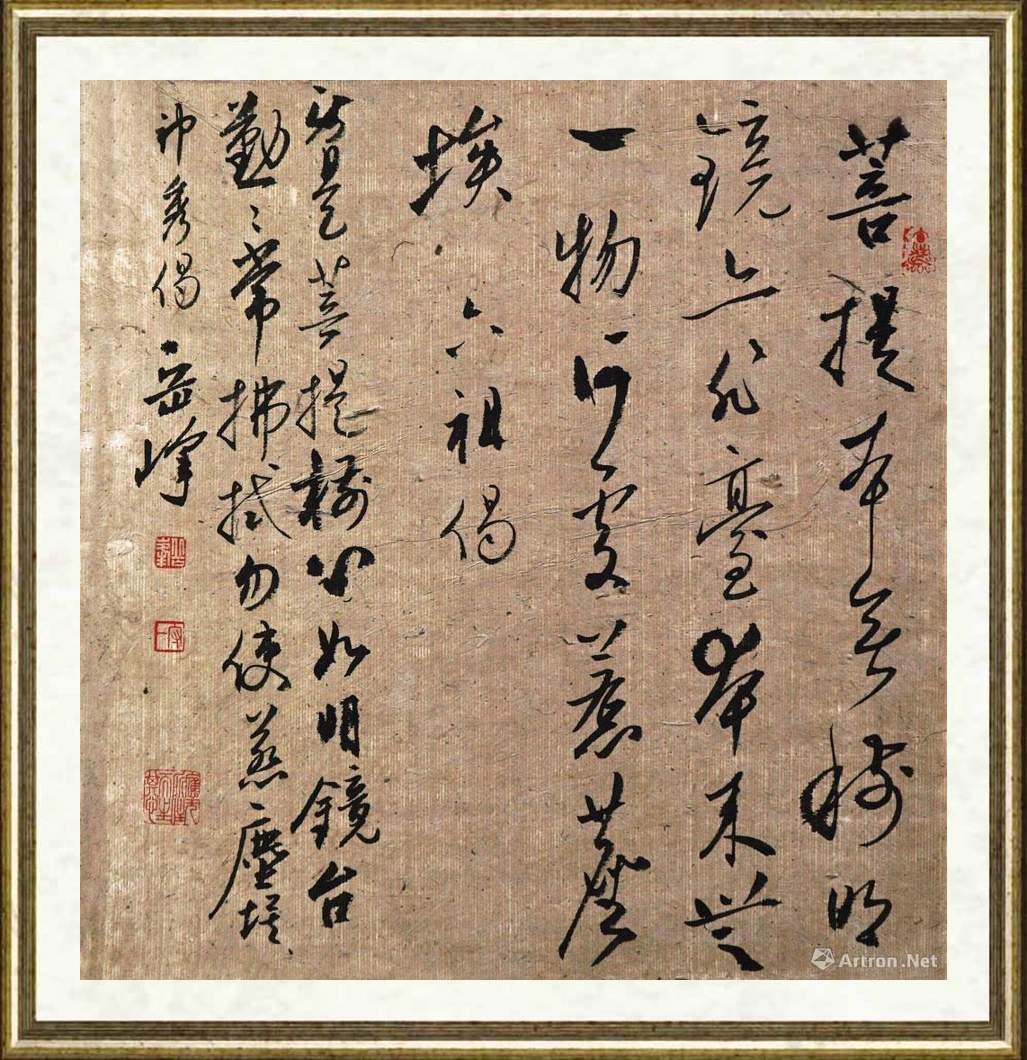 菩提本無樹明
鏡亦非臺本来無
一物何處惹塵
埃 六祖偈
身是菩提樹心如明鏡台
勤〻常拂拭勿使惹塵埃
神秀偈 岳峰
Artron.Net